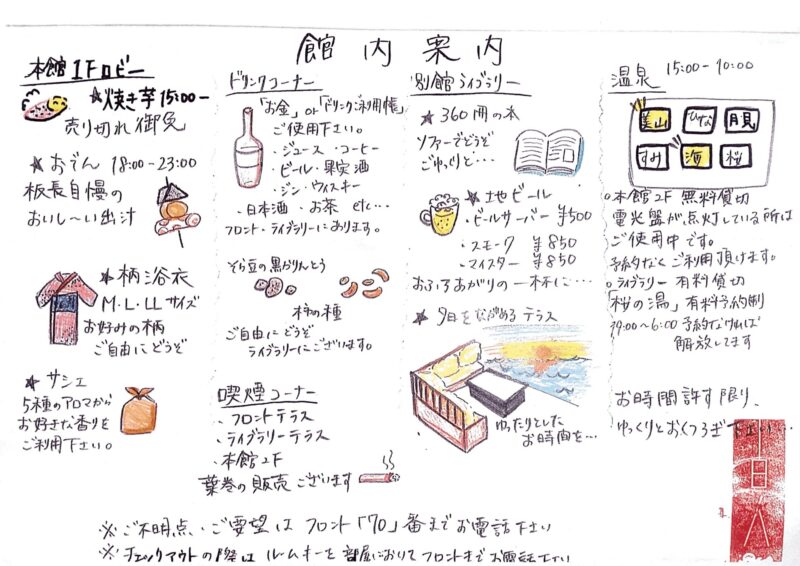 館内案内
本館1Fロビー
★焼き芋15:00-
売り切れ御免
★おでん 18:00-23:00
板長自慢の
おいし〜い出汁
★柄浴衣
M・L・LLサイズ
お好みの柄
ご自由にどうぞ
★サシェ
5種のアロマから
お好きな香りを
ご利用下さい。
ドリンクコーナー
「お金」or「ドリンクご利用帳」
ご使用下さい。
・ジュース ・コーヒー
・ビール・果実酒
・ジン・ウィスキー
・日本酒 ・お茶 etc…
フロント・ライブラリーにおります。
そら豆の黒かりんとう
柿の種
ご自由にどうぞ
ライブラリーにございます。
喫煙コーナー
・フロントテラス
・ライブラリーテラス
・本館2F
葉巻の販売ございます
別館ライブラリー
★360冊の本
ソファーでどうぞ
ごゆっくりと…
★地ビール
・ビールサーバー ¥500
・スモーク ¥850
・マイスター ¥850
おふろあがりの一杯に…
★夕日をながめるテラス
ゆったりとした
お時間を…
温泉 15:00-10:00
美山 ひな 月見
すみ 海 桜
○本館2F 無料貸切
電光盤が点灯している所は
ご使用中です。
予約なくご利用頂けます。
○ライブラリー 有料貸切
「桜の湯」有料予約制
19:00〜6:00 予約なければ
解放してます
お時間許す限り、
ゆっくりとおくつろぎ下さい…
※ご不明点・ご要望はフロント「70」番までお電話下さい
※チェックアウトの際はルームキーを部屋においてフロントまでお電話下さい